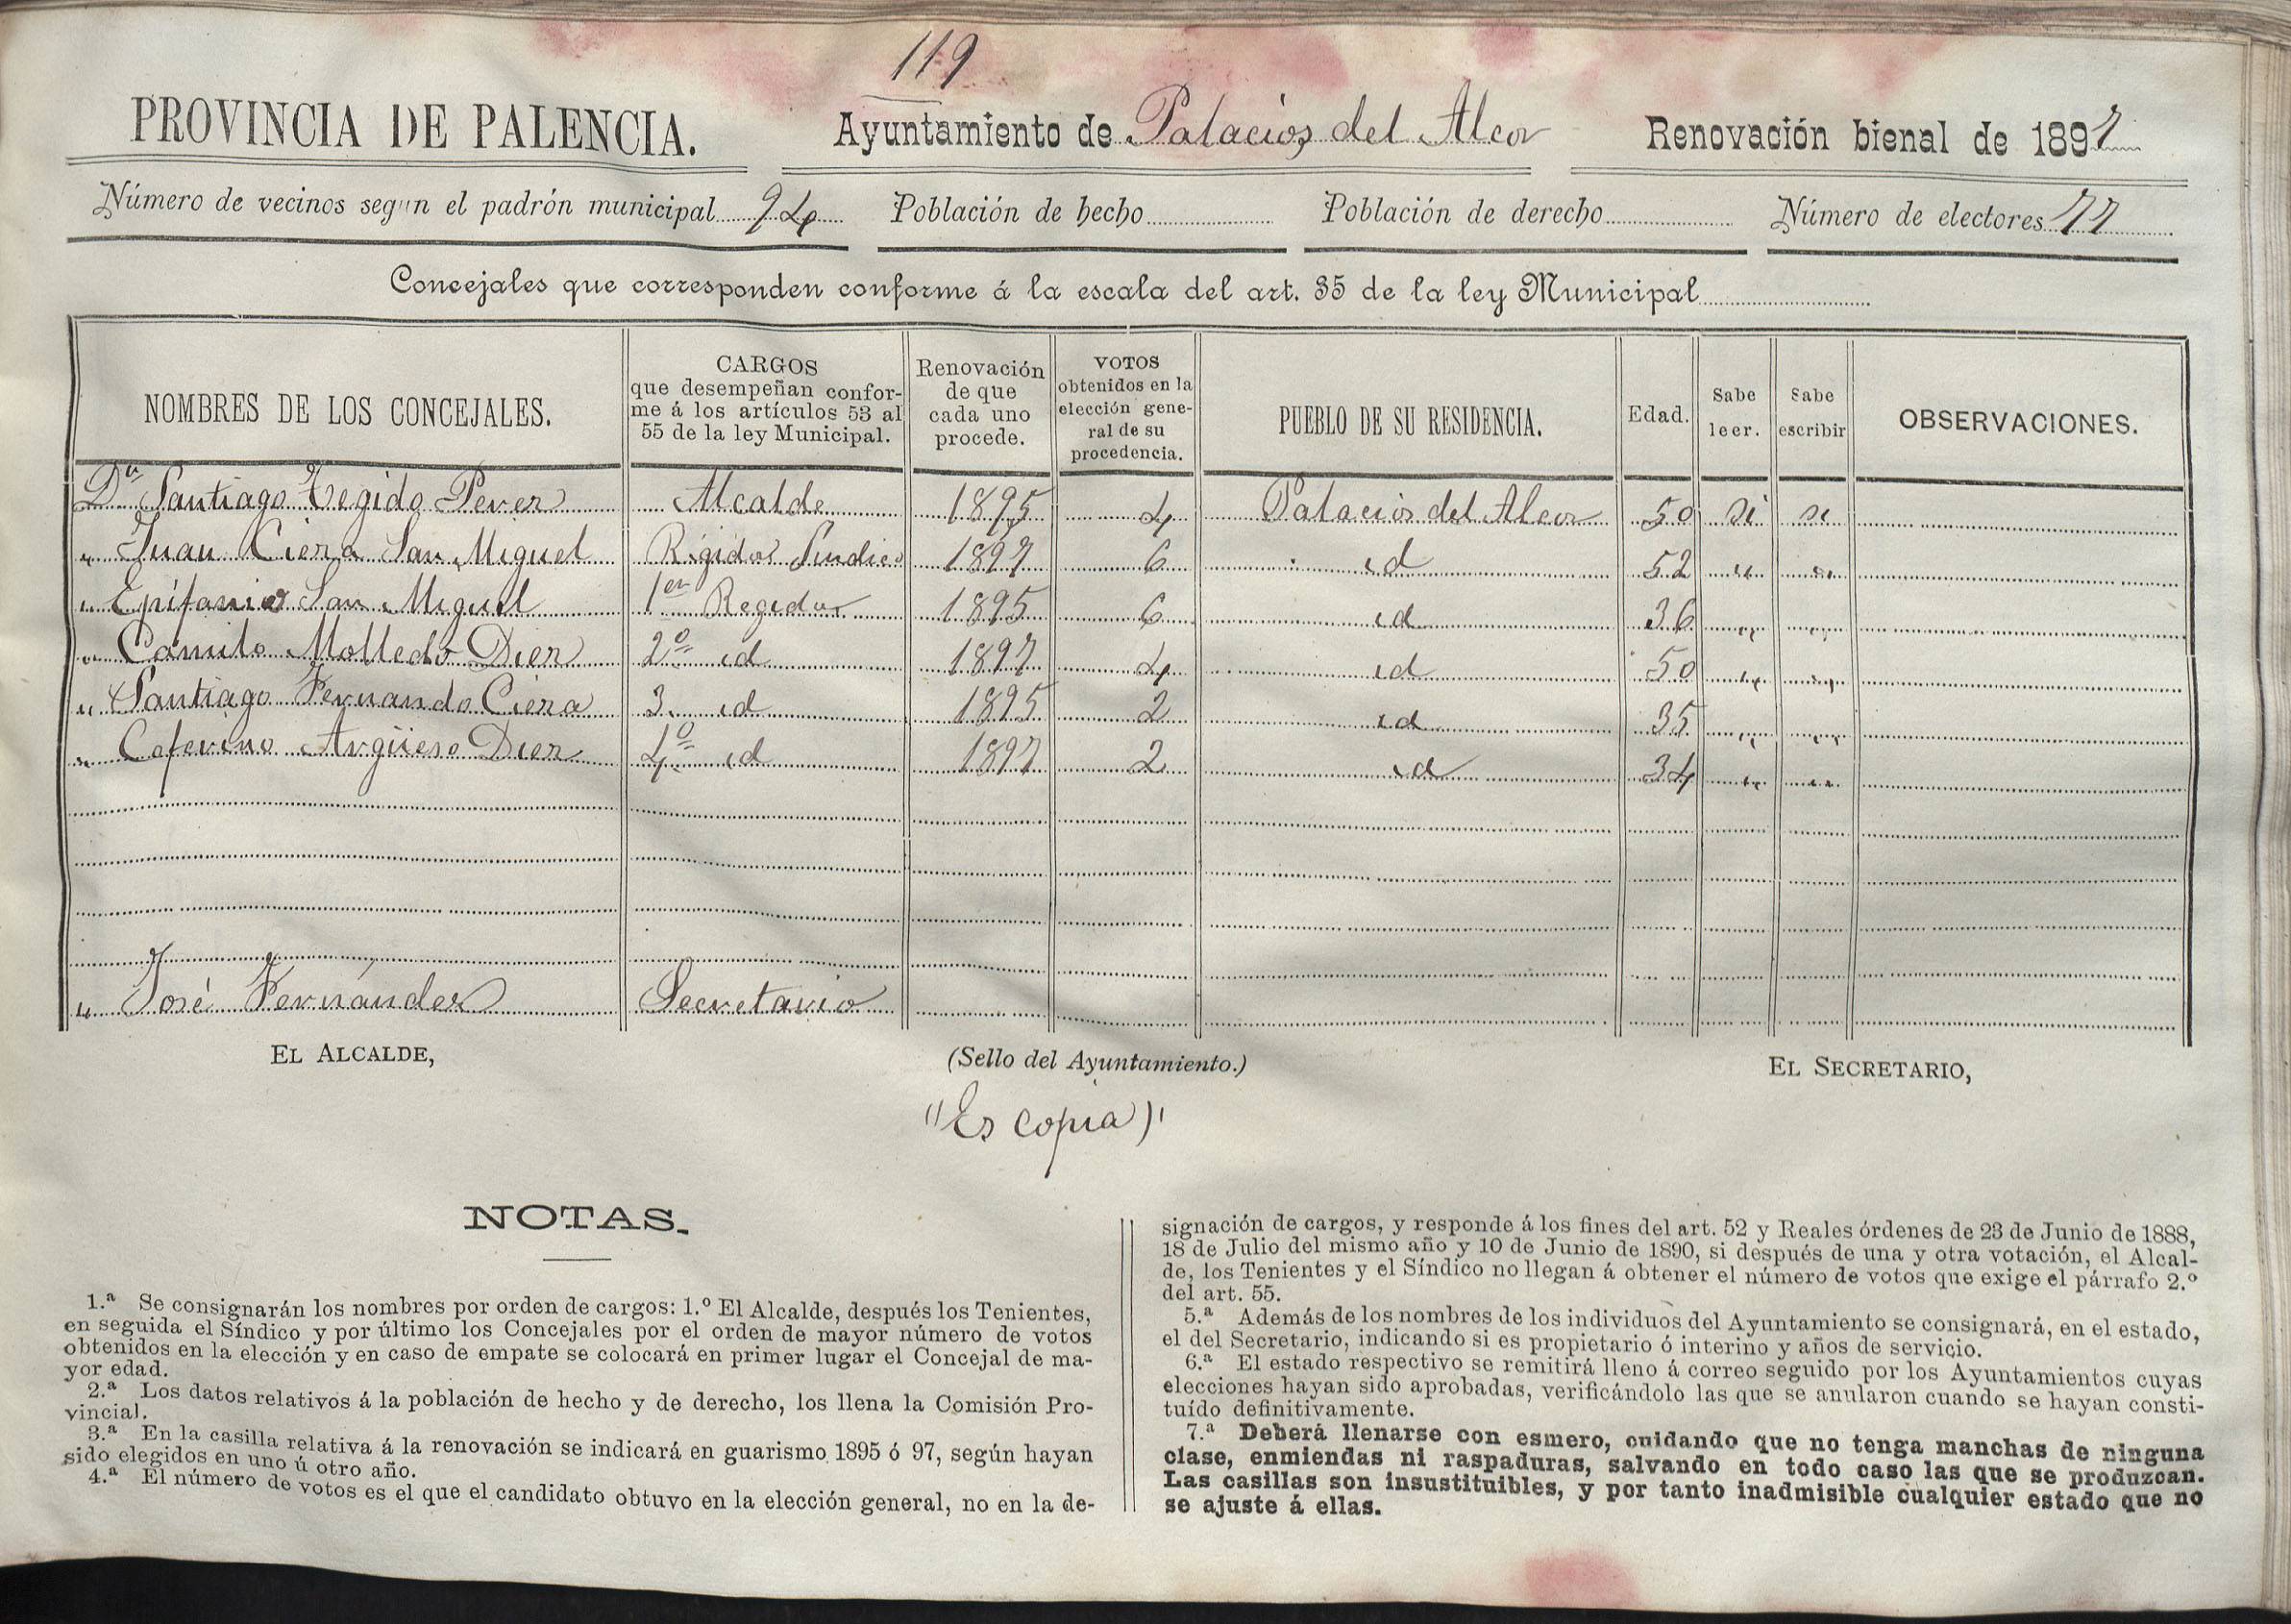 119
PROVINCIA DE PALENCIA. Ayuntamiento de Palacios del Alcor Renovación bienal de 1897
Número de vecinos según el padrón municipal 94 Población de hecho Población de derecho Número de electores 77
Concejales que corresponden conforme á la escala del art. 35 de la ley Municipal
NOMBRES DE LOS CONCEJALES. CARGOS que desempeñan confor- me á los artículos 53 al 55 de la ley Municipal. Renovación de que cada uno procede. VOTOS obtenidos en la elección gene- ral de su procedencia. PUEBLO DE SU RESIDENCIA. Edad. Sabe leer. Sabe escribir OBSERVACIONES.
Dn Santiago Tegido Perez Alcalde 1895 4 Palacios del Alcor 50 si si
" Juan Ciera San Miguel Rigidor Sindico 1897 6 id 52 " "
" Epifanio San Miguel 1er Regidor 1895 6 id 36 " "
" Camilo Molledo Diez 2º id 1897 4 id 50 " "
" Santiago Fernando Ciera 3. id 1895 2 id 35 " "
" Ceferino Argüeso Diez 4º id 1897 2 id 34 " "
" José Fernández Secretario
EL ALCALDE, (Sello del Ayuntamiento.) EL SECRETARIO,
"(Es copia)"
NOTAS.
1.ª Se consignarán los nombres por orden de cargos: 1.º El Alcalde, después los Tenientes,
en seguida el Síndico y por último los Concejales por el orden de mayor número de votos
obtenidos en la elección y en caso de empate se colocará en primer lugar el Concejal de ma-
yor edad.
2.ª Los datos relativos á la población de hecho y de derecho, los llena la Comisión Pro-
vincial.
3.ª En la casilla relativa á la renovación se indicará en guarismo 1895 ó 97, según hayan
sido elegidos en uno ú otro año.
4.ª El número de votos es el que el candidato obtuvo en la elección general, no en la de-
signación de cargos, y responde á los fines del art. 52 y Reales órdenes de 23 de Junio de 1888,
18 de Julio del mismo año y 10 de Junio de 1890, si después de una y otra votación, el Alcal-
de, los Tenientes y el Síndico no llegan á obtener el número de votos que exige el párrafo 2.º
del art. 55.
5.ª Además de los nombres de los individuos del Ayuntamiento se consignará, en el estado,
el del Secretario, indicando si es propietario ó interino y años de servicio.
6.ª El estado respectivo se remitirá lleno á correo seguido por los Ayuntamientos cuyas
elecciones hayan sido aprobadas, verificándolo las que se anularon cuando se hayan consti-
tuído definitivamente.
7.ª Deberá llenarse con esmero, cuidando que no tenga manchas de ninguna
clase, enmiendas ni raspaduras, salvando en todo caso las que se produzcan.
Las casillas son insustituibles, y por tanto inadmisible cualquier estado que no
se ajuste á ellas.